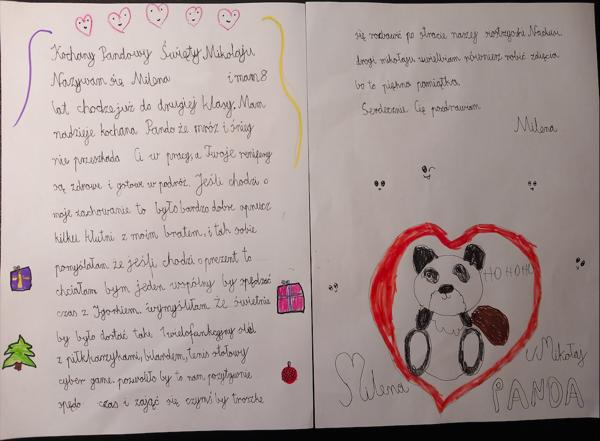 Kochany Pandowy Święty Mikołaju
Nazywam się Milena i mam 8
lat chodzę już do drugiej klasy. Mam
nadzieję kochana Pando że mróz i śnieg
nie przeszkadza Ci w pracy, a Twoje renifery
są zdrowe i gotowe w podróż. Jeśli chodzi o
moje zachowanie to było bardzo dobre oprucz
kilku kłutni z moim bratem, i tak sobie
pomyślałam że jeśli chodzi o prezent to
chciałam bym jeden wspólny by spędzać
czas z Igorkiem. wymyśliłam że świetnie
by było dostać taki wielofunkcyjny stół
z piłkarzykami, bilardem, tenis stołowy
cyber game. pozwoliło by to nam pozytywnie
spędo czas i zająć się czymś by troszke
się rozbawić po stracie naszej
drogi mikołaju uwielbiam również robić zdjęcia
bo to piękna pamiątka.
Serdecznie Cię pozdrawiam
Milena
HO HO HO
Milena
Mikołaj
PANDA